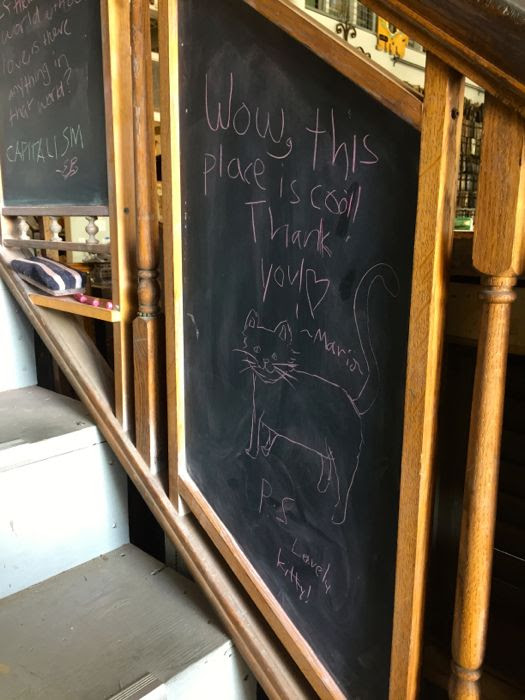 world without
love is there
anything in
that world?
CAPITALISM
Wow, this
place is cool!
Thank
you!♡
~Maria
PS
Lovely
kitty!